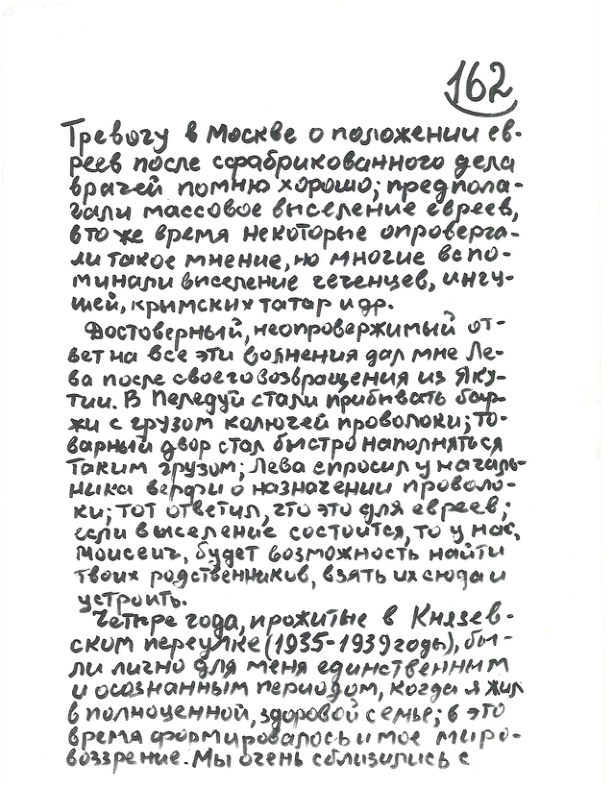 162
Тревогу в Москве о положении ев-
реев после сфабрикованного дела
врачей помню хорошо; предпола-
гали массовое выселение евреев,
в то же время некоторые опроверга-
ли такое мнение, но многие вспо-
минали выселение чеченцев, ингу-
шей, крымских татар и др.
Достоверный, неопровержимый от-
вет на все эти волнения дал мне Ле-
ва после своего возвращения из Яку-
тии. В Пеледуй стали прибывать бар-
жи с грузом колючей проволоки; то-
варный двор стал быстро наполняться
таким грузом; Лева спросил у началь-
ника верфи о назначении проволо-
ки; тот ответил, что это для евреев;
если выселение состоится, то у нас,
Моисеич, будет возможность найти
твоих родственников, взять их сюда и
устроить.
Четыре года, прожитые в Князев-
ском переулке (1935-1939 годы), бы-
ли лично для меня единственным
и осознанным периодом, когда я жил
в полноценной, здоровой семье; в это
время формировалось и мое миро-
воззрение. Мы очень сблизились с